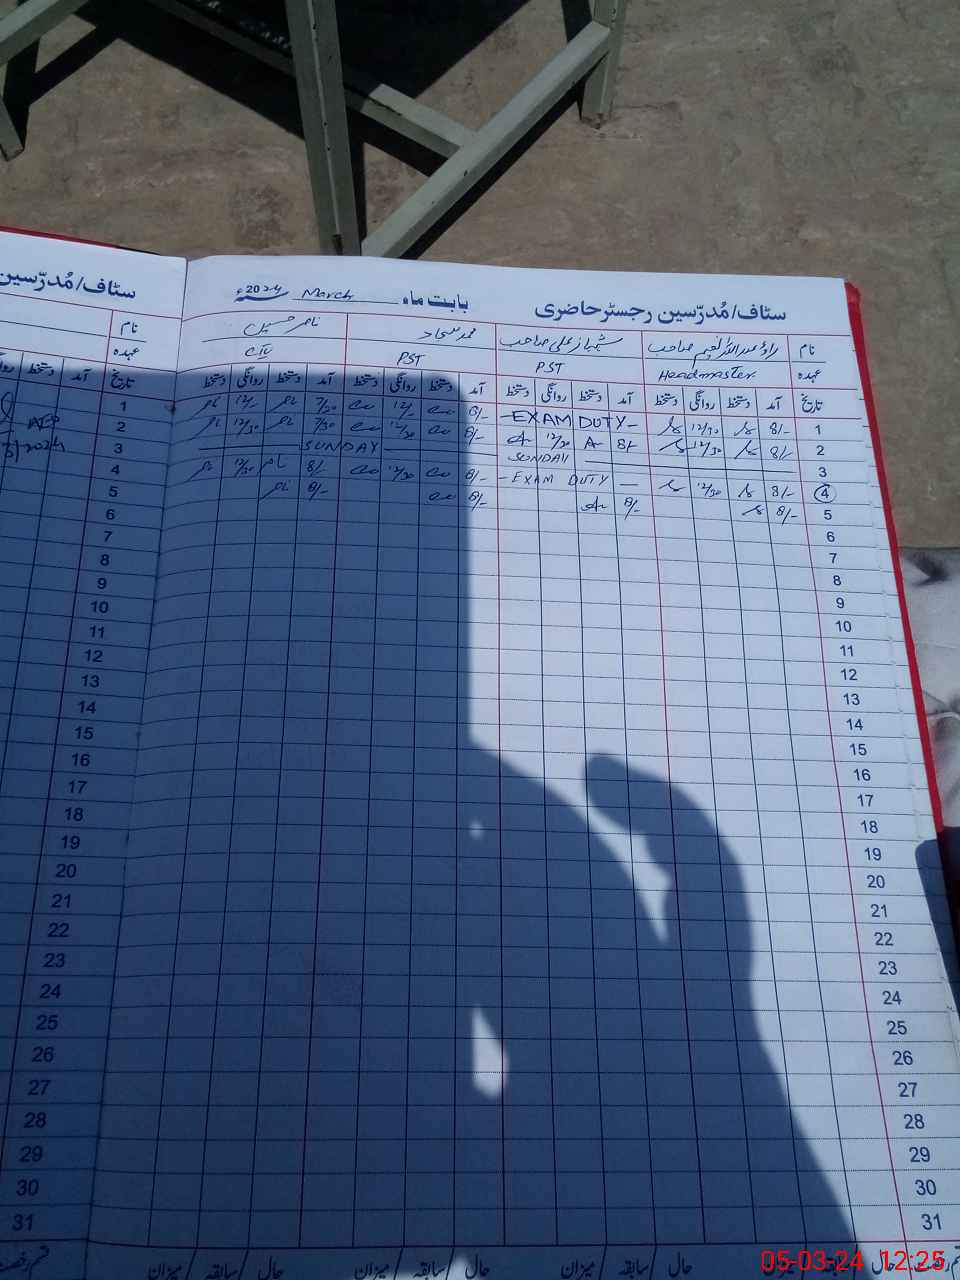 سٹاف/مُدرّسین رجسٹر حاضری بابت ماہ March 2024ء
سٹاف/مُدرّسین
نام شہباز علی صاحب محمد سجاد ناصر حسین
نام
عہدہ Headmaster PST PST
عہدہ
تاریخ آمد دستخط روانگی دستخط آمد دستخط روانگی دستخط آمد دستخط روانگی دستخط آمد دستخط روانگی دستخط
تاریخ آمد دستخط
1 8/- 12/30 -EXAM DUTY- 8/- 12/- 7/30 12/-
1
2 8/- 12/30 8/- 12/30 8/- 12/30 7/30 12/30
2
3 SUNDAY SUNDAY
3
4 8/- 12/30 -EXAM DUTY- 8/- 12/30 8/- 12/30
4
5 8/- 8/- 8/- 8/-
5
6
6
7
7
8
8
9
9
10
10
11
11
12
12
13
13
14
14
15
15
16
16
17
17
18
18
19
19
20
20
21
21
22
22
23
23
24
24
25
25
26
26
27
27
28
28
29
29
30
30
31
31
حال سابقہ میزان حال سابقہ میزان حال سابقہ میزان
05-03-24 12:25